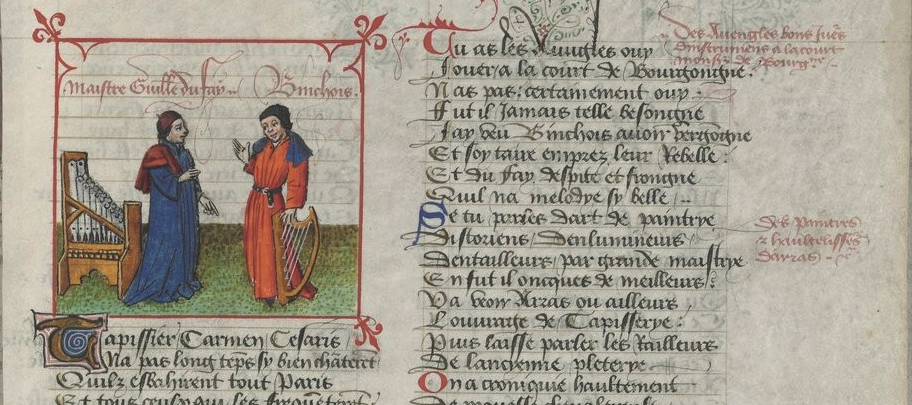 Maistre Guille du fay .. Binchois.
Tapissier Carmen Cesaris
Na pas long teps sy bien chāterēt
Quilz esbahirent tout Paris
Et tous ceulx qui les frequēterēt
Tu as les Avugles ouy
Jouer a la court de Bourgongne.
Nas pas: certainement ouy.
Fut il Jamais telle besongne
Jay veu Binchois avoir vergongne
Et soy taire emprez leur Rebelle:
Et du fay despite et frongne
Quil na melodye sy belle
Se tu parles dart de paintrye
Distoriens / Denlumineurs
Dentailleurs / par grande maistrye
En fut il oncques de meilleurs:
Va veoir Arras ou ailleurs
Louvrage de Tapisserye:
Puis laisse parler les Railleurs
De lancienne pleterye
On a cronique haultement
Des Avengles bons jueurs
dinstrumens a la court
monsr de Bourgne
des paintres
& haultelisses
darras